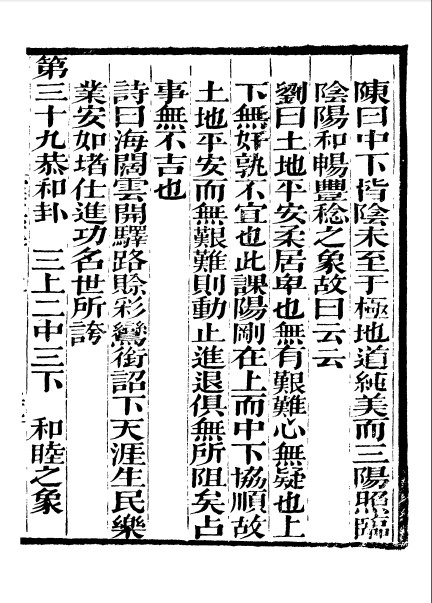 陳曰中下皆陰未至于極地道純美而三陽照臨
陰陽和暢豐稔之象故曰云云
劉曰土地平安柔居卑也無有艱難心無疑也上
下無奸孰不宜也此課陽剛在上而中下協順故
土地平安而無艱難則動止進退俱無所阻矣占
事無不吉也
詩曰海闊雲開驛路賒彩鸞銜詔下天涯生民樂
業安如堵仕進功名世所誇
第三十九恭和卦 三上二中三下 和睦之象